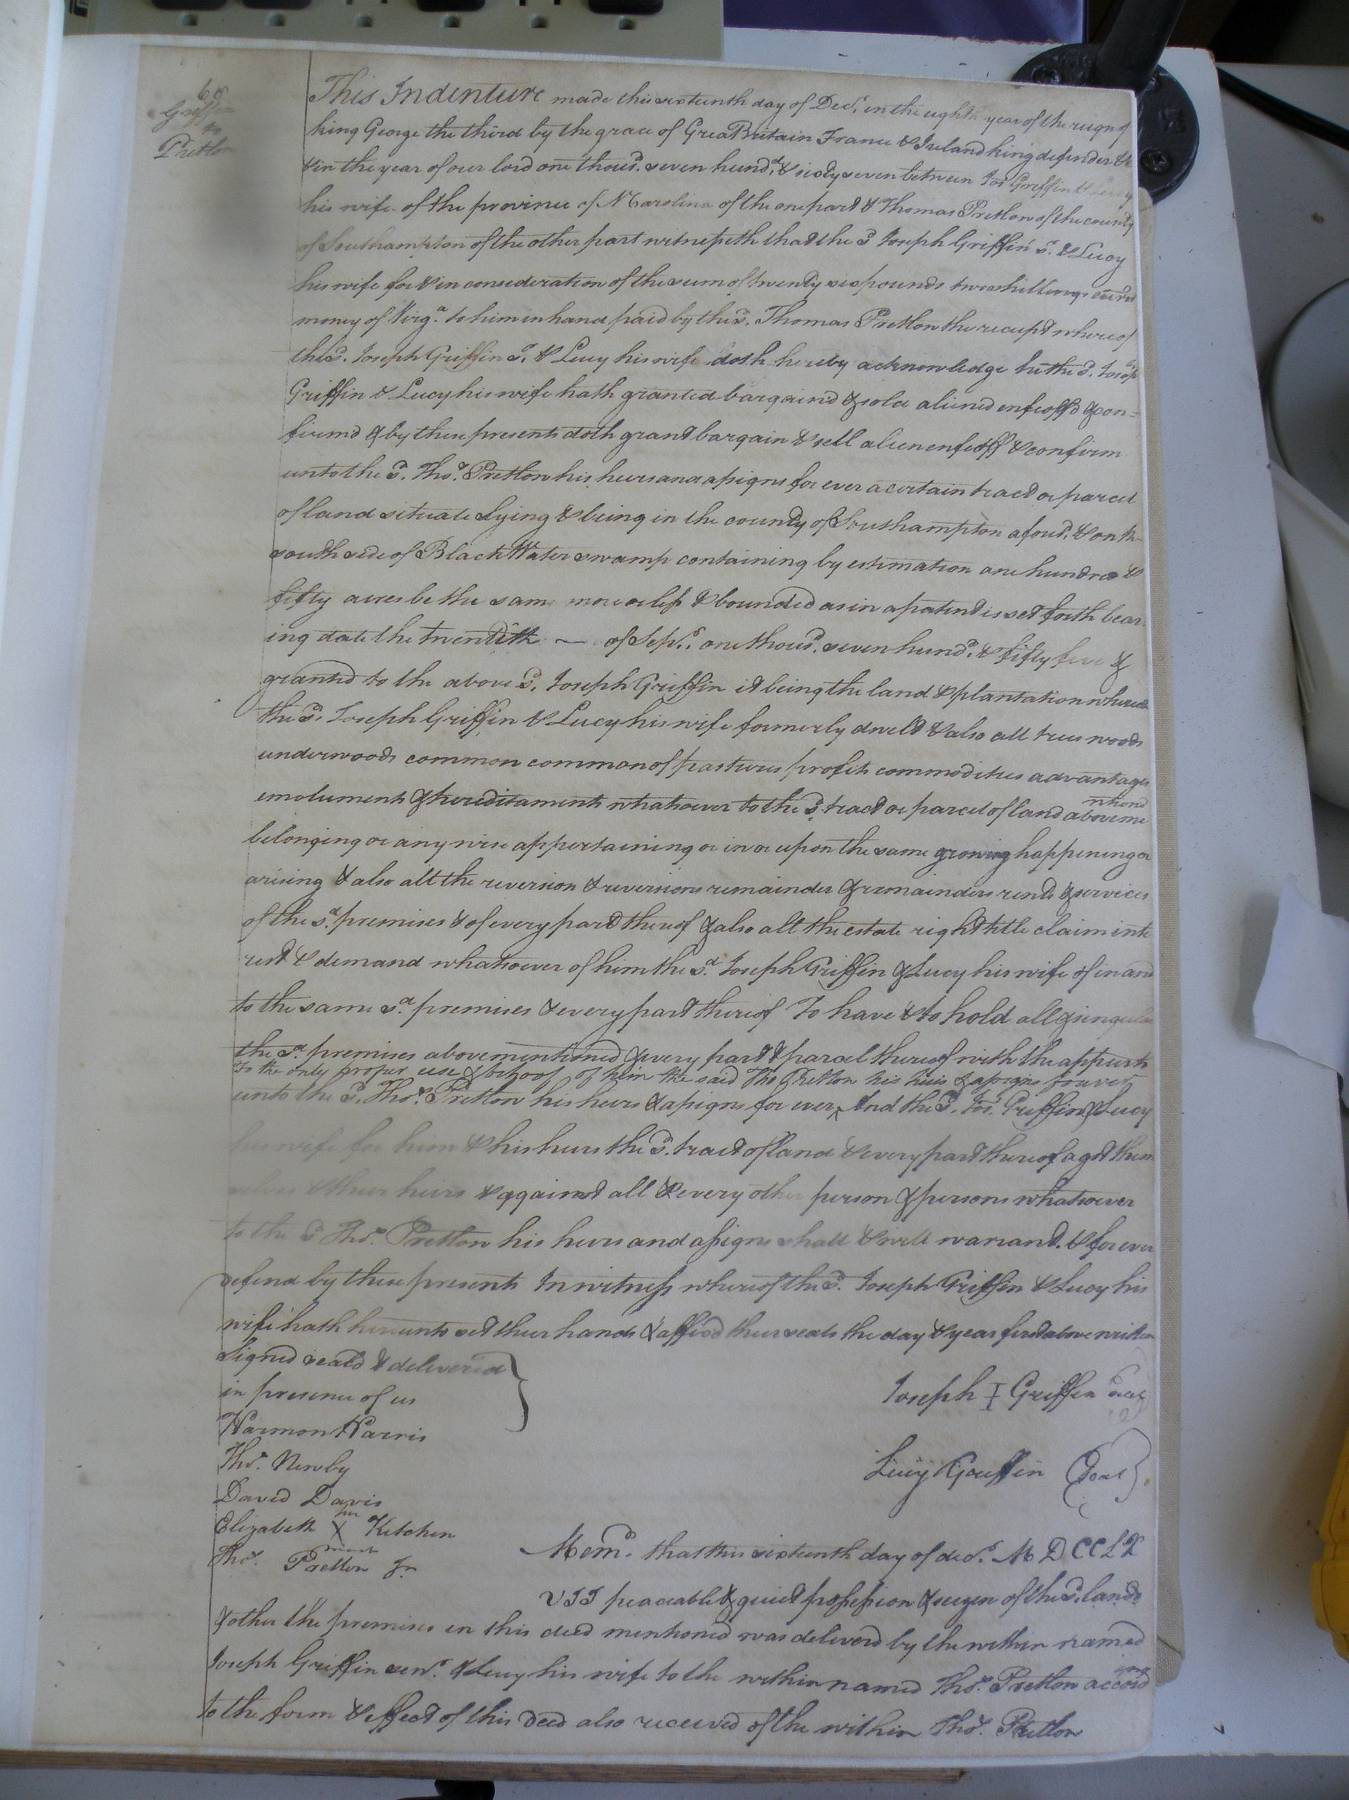 68
Griffin
to
Pretlow
This Indenture made this sixteenth day of Decr. in the eighth year of the reign of
king George the third by the grace of Great Britain France & Ireland king defender &c
& in the year of our lord one thousd. seven hundd. & sixty seven between Jos Griffin & Lucy
his wife of the province of N Carolina of the one part & Thomas Pretlow of the county
of Southampton of the other part witnesseth that the sd. Joseph Griffin sr. & Lucy
his wife for & in consideration of the sum of twenty six pounds two shillings curr
money of Virga. to him in hand paid by the sd. Thomas Pretlow the receipt whereof
the sd. Joseph Griffin sr. & Lucy his wife doth hereby acknowledge he the sd. Joseph
Griffin & Lucy his wife hath granted bargaind & sold aliened enfeoffd & con=
firmd & by these presents doth grant bargain & sell alien enfeoff & confirm
unto the sd. Thos. Pretlow his heirs and assigns for ever a certain tract or parcel
of land situate lying & being in the county of Southampton aforsd. & on the
south side of Black Water swamp containing by estimation one hundred &
fifty acres be the same more or less & bounded as in a patent is set forth bear
ing date the twentith — of Sepr. one thousd. seven hundd. & fifty five &
granted to the above sd. Joseph Griffin it being the land & plantation whereon
the sd. Joseph Griffin & Lucy his wife formerly dwelt & also all trees woods
underwoods common common of pastures profits commodities advantages
emoluments & hereditaments whatsoever to the sd. tract or parcel of land aboveme
ntiond
belonging or any wise appertaining or in or upon the same growing happening or
arising & also all the reversion & reversions remainder & remainders rents & services
of the sd. premises & of every part thereof & also all the estate right title claim inte
rest & demand whatsoever of him the sd. Joseph Griffin & Lucy his wife of in and
to the same sd. premises & every part thereof To have & to hold all & singular
the sd. premises abovementioned & every part & parcel thereof with the appurts
To the only proper use & behoof of him the said Tho Pretlow his heirs & assigns forever
unto the sd. Thos. Pretlow his heirs & assigns for ever ^ And the sd. Jos. Griffin & Lucy
his wife for him & his heirs the sd. tract of land & every part thereof agst them
selves & their heirs & against all & every other person & persons whatsoever
to the sd Thos. Pretlow his heirs and assigns shall & will warrant & forever
defend by these presents In witness whereof the sd. Joseph Griffin & Lucy his
wife hath hereunto set their hands & affixd their seals the day & year first above written
Signed seald & delivered
in presence of us
Joseph I Griffin Seal
Harmon Harris
Thos. Newby
Lucy Griffin (Seal)
David Davis
her
Elizabeth X Kitchen
mark
Thos. Pretlow Jr
Memd. that this sixteenth day of decr. M D CC L X
VII peaceable & quiet possession & seizen of the sd. lands
& other the premises in this deed mentioned was deliverd by the within named
Joseph Griffin senr. & Lucy his wife to the within named Thos. Pretlow accord
ing
to the form & effect of this Deed also received of the within Thos. Pretlow